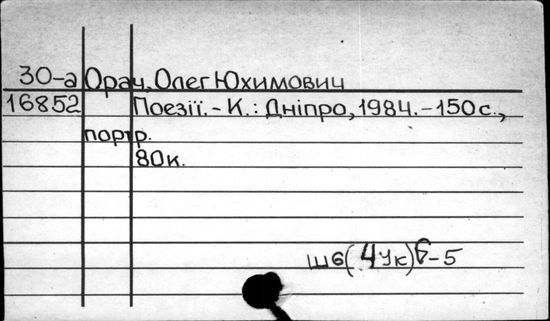 30-а Орач, Олег Юхимович
16852 Поезії. - К.: Дніпро, 1984. - 150 с.,
портр.
80к.
Ш6(4Ук)6-5